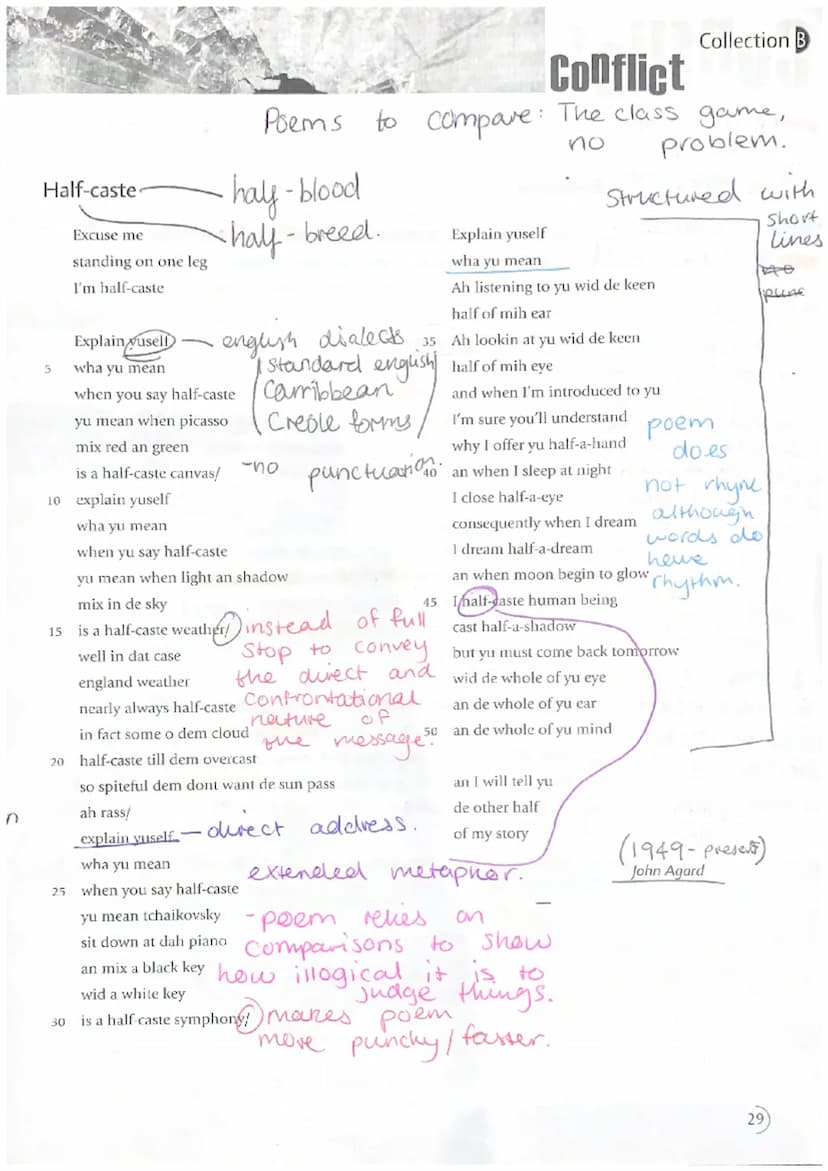 Collection B
Conflict
Poems to compare: The class game,
no problem.
Half-caste
half-blood
half-breed.
Structured with
short
lines
Excuse me
standing on one leg
I'm half-caste
Explain yuself
5 wha yu mean
when you say half-caste
yu mean when picasso
mix red an green
is a half-caste canvas/
10 explain yuself
wha yu mean
when yu say half-caste
yu mean when light an shadow
mix in de sky
15 is a half-caste weather/
well in dat case
england weather
nearly always half-caste
in fact some o dem cloud
20 half-caste till dem overcast
so spiteful dem dont want de sun pass
ah rass/
explain yuself
wha yu mean
25 when you say half-caste
yu mean tchaikovsky
sit down at dah piano
an mix a black key
wid a white key
30 is a half-caste symphony/
english dialects
standard english
Carribbean
Creole forms
-no punctuation.
instead of full
stop to convey
the direct and
confrontational
nature of
the message.
n
- direct address.
extended metaphor.
-poem relies on
comparisons to show
how illogical it is to
judge things.
makes poem
more punchy/faster.
Explain yuself
wha yu mean
Ah listening to yu wid de keen
half of mih ear
35 Ah lookin at yu wid de keen
half of mih eye
and when I'm introduced to yu
I'm sure you'll understand
why I offer yu half-a-hand
40 an when I sleep at night
I close half-a-eye
consequently when I dream
I dream half-a-dream
an when moon begin to glow
45 I half-caste human being
cast half-a-shadow
but yu must come back tomorrow
wid de whole of yu eye
an de whole of yu ear
50 an de whole of yu mind
an I will tell yu
de other half
of my story
poem
does
not rhyme
although
words do
have
rhythm.
(1949-present)
John Agard
29